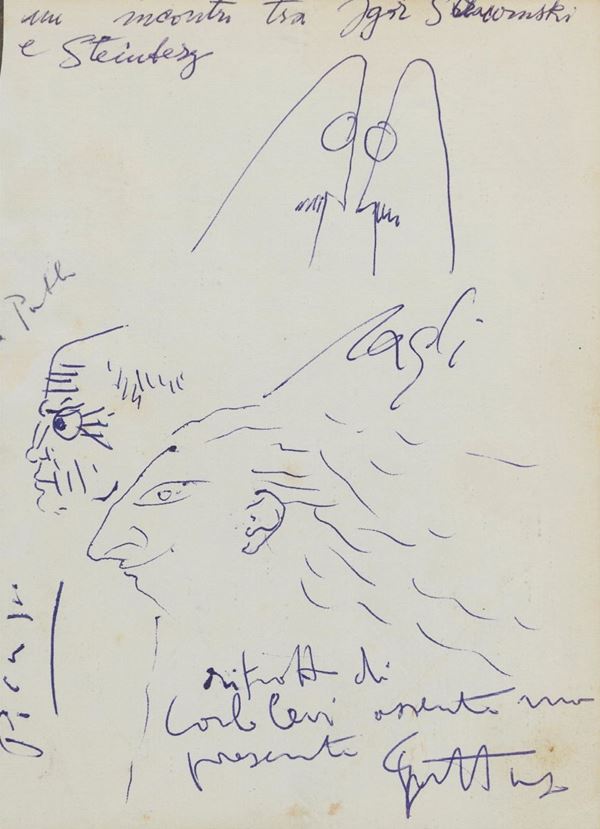 un incontro tra Igor
e Steinberg
Cagli
Picasso
ritratto di
Carlo Levi assente ma
presente Guttuso